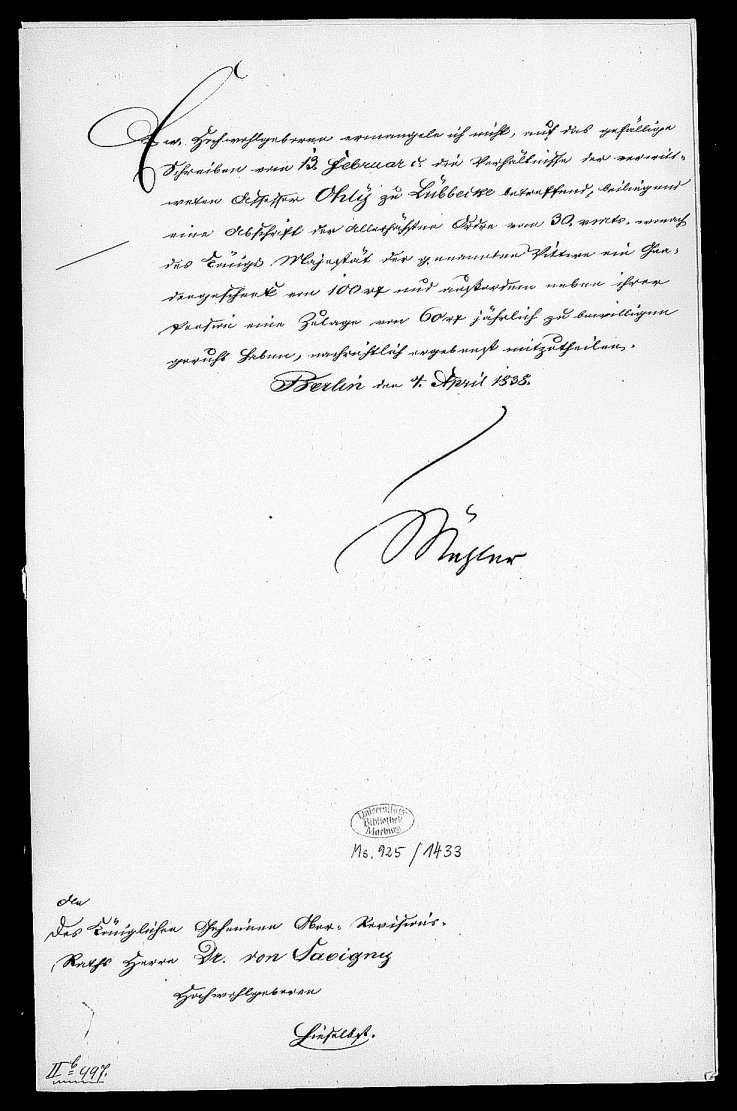 Ew. Hochwohlgeboren ermangele ich nicht, auf das gefällige
Schreiben vom 13. Februar c die Verhältnisse der verwitt-
weten Assessor Ohly zu Lübbecke betreffend, beiliegend
eine Abschrift der Allerhöchsten Ordre vom 30. v. Mts. wonach
des Königs Majestät der genannten Wittwe ein Gna-
dengeschenk von 100 rt und außerdem neben ihrer
Pension eine Zulage von 60 rt jährlich zu bewilligen
geruht haben, nachrichtlich ergebenst mitzutheilen.
Berlin den 4. April 1838.
Mühler
Universitäts-
Bibliothek
Marburg
Ms. 925/1433
An
des Königlichen Geheimen Ober-Revisions-
Raths Herrn Dr. von Savigny
Hochwohlgeboren
hieselbst.
II b 997.